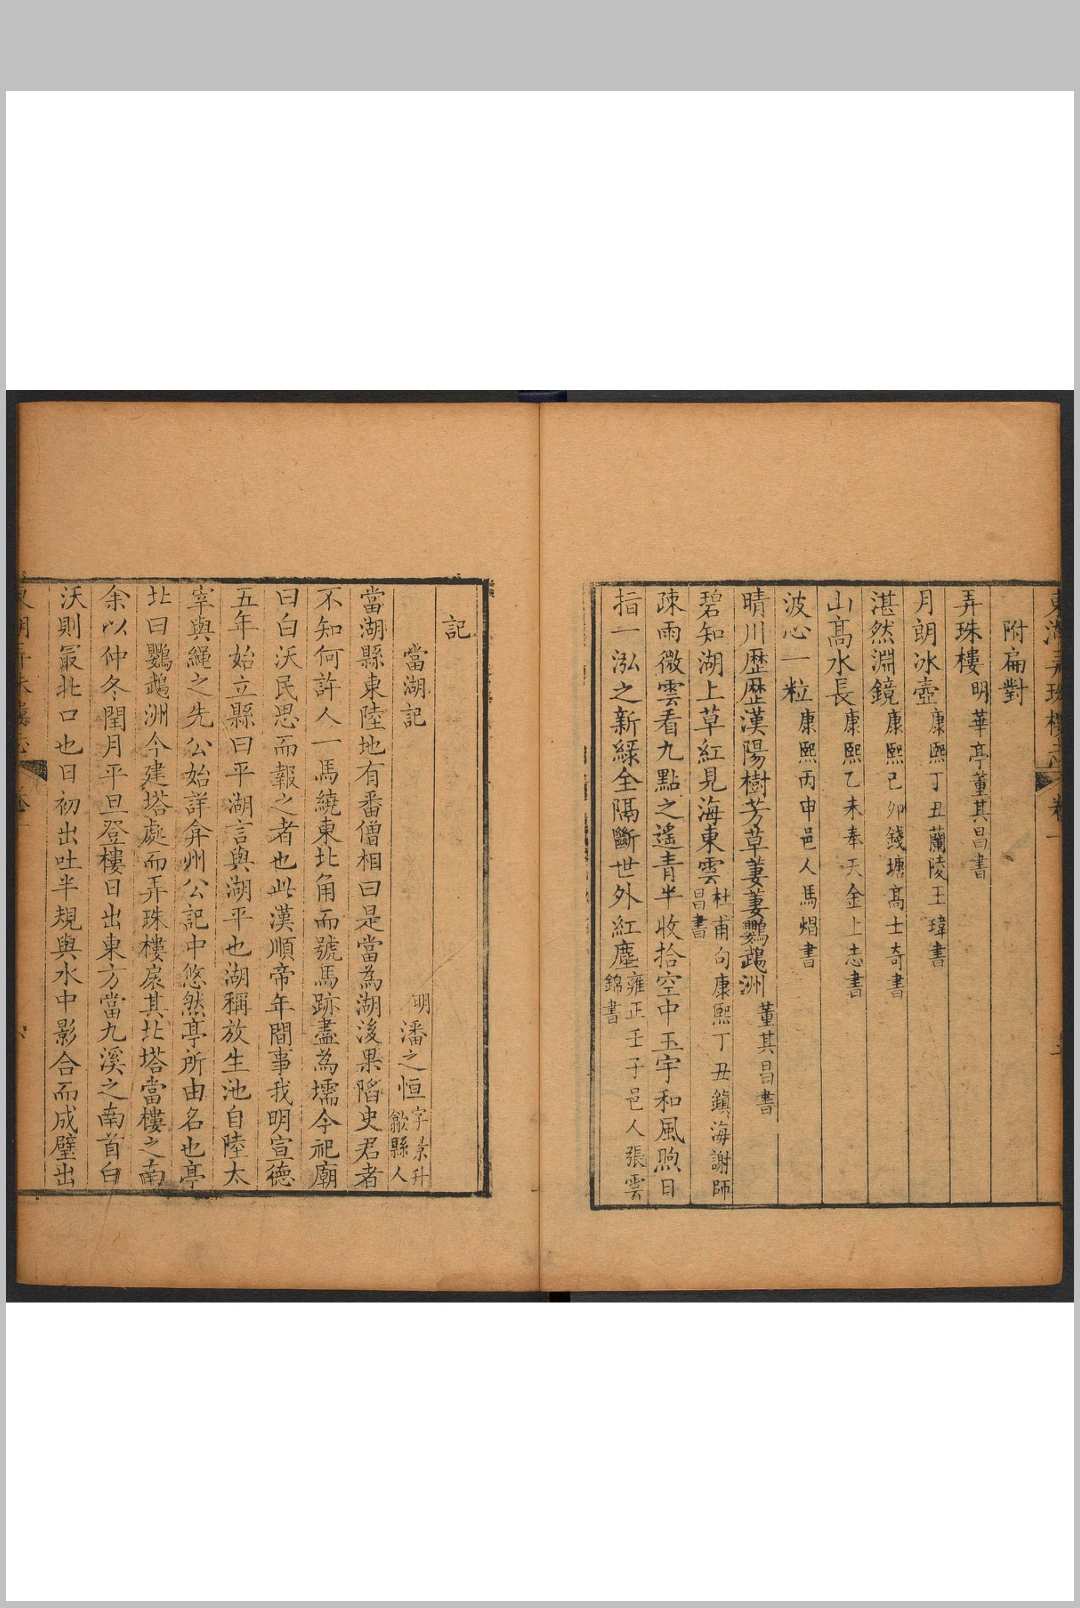 東湖弄珠樓志 卷一
附扁對
弄珠樓 明華亭董其昌書
月朗冰壺 康熙丁丑蘭陵王瑋書
湛然淵鏡 康熙己卯錢塘髙士奇書
山髙水長 康熙乙未奉天金上志書
波心一粒 康熙丙申邑人馬焻書
晴川歴歴漢陽樹芳草萋萋鸚鵡洲 董其昌書
碧知湖上草紅見海東雲 杜甫句康熙丁丑鎮海謝師昌書
疎雨微雲看九點之遥青半收拾空中玉宇和風煦日
指一泓之新緑全隔斷世外紅塵 雍正壬子邑人張雲錦書
記
當湖記
明 潘之恒 字景升歙縣人
當湖縣東陸地有番僧相曰是當為湖後果陷史君者
不知何許人一馬繞東北角而號馬跡盡為壖今祀廟
曰白沃民思而報之者也此漢順帝年間事我明宣德
五年始立縣曰平湖言與湖平也湖稱放生池自陸太
宰與繩之先公始詳弇州公記中悠然亭所由名也亭
北曰鸚鵡洲今建塔處而弄珠樓扆其北塔當樓之南
余以仲冬閏月平旦登樓日出東方當九溪之南首白
沃則最北口也日初出吐半規與水中影合而成璧出